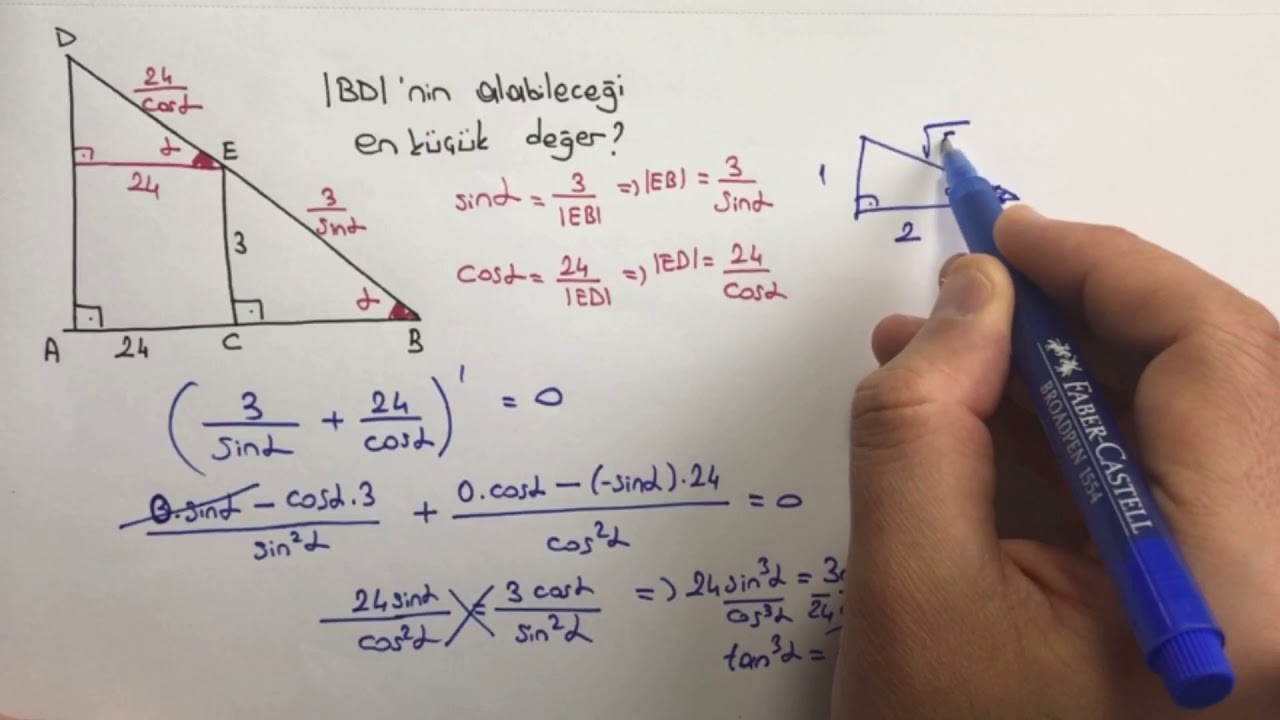 D
24/cosα
α
E
24
3/sinα
3
α
A 24 C B
|BD|'nin alabileceği
en küçük değer?
sinα = 3/|EB| => |EB| = 3/sinα
cosα = 24/|ED| => |ED| = 24/cosα
1
2
(3/sinα + 24/cosα)' = 0
(0.sinα - cosα.3)/sin²α + (0.cosα - (-sinα).24)/cos²α = 0
24sinα/cos²α = 3cosα/sin²α => 24sin³α/cos³α = 3/24
tan³α =
FABER-CASTELL
BROADPEN 1554